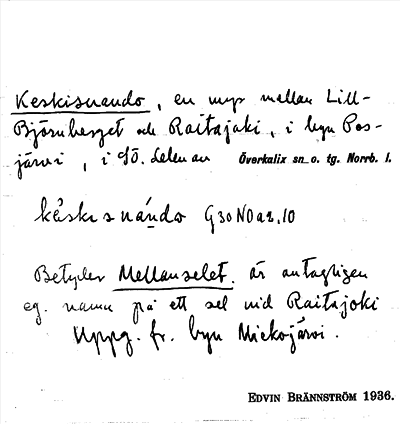 Keskisuando, en myr mellan Lill-
Björnberget och Raitajoki, i byn Pos-
järvi, i SÖ. delen av Överkalix sn o. tg. Norrb. l.
kèskisuándo G30NOaz,10
Betyder Mellanselet, är antagligen
eg. namn på ett sel vid Raitajoki
Uppg. fr. byn Mickojärvi.
EDVIN BRÄNNSTRÖM 1936.